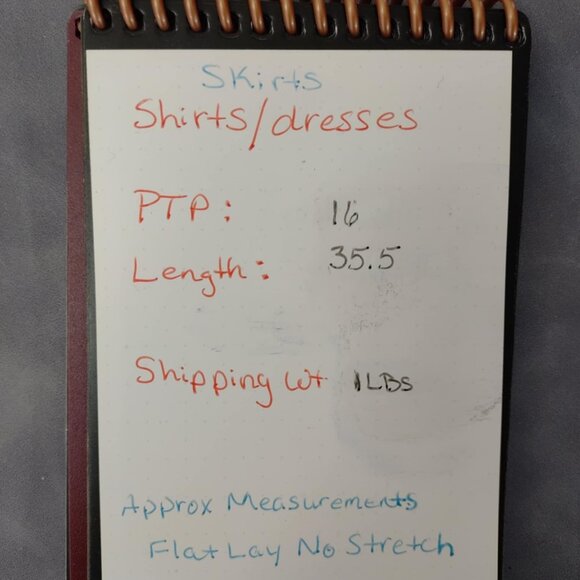 Skirts
Shirts/dresses
PTP: 16
Length: 35.5
Shipping Wt 1LBS
Approx Measurements
Flat Lay No Stretch